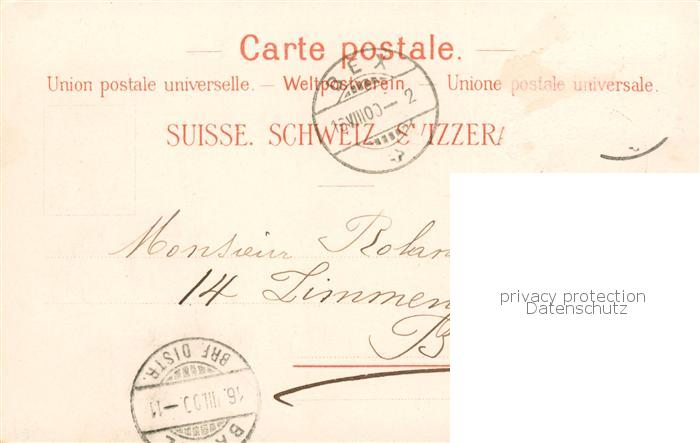 Carte postale.
Union postale universelle. — Weltpostverein. — Unione postale universale.
BEX
15 VIII 00 – 2
SUISSE. SCHWEIZ. SVIZZERA
Monsieur Rolan
14 Zimmen
B
privacy protection
Datenschutz
BRF. DISTR.
16. VIII. 00. – 11
BA